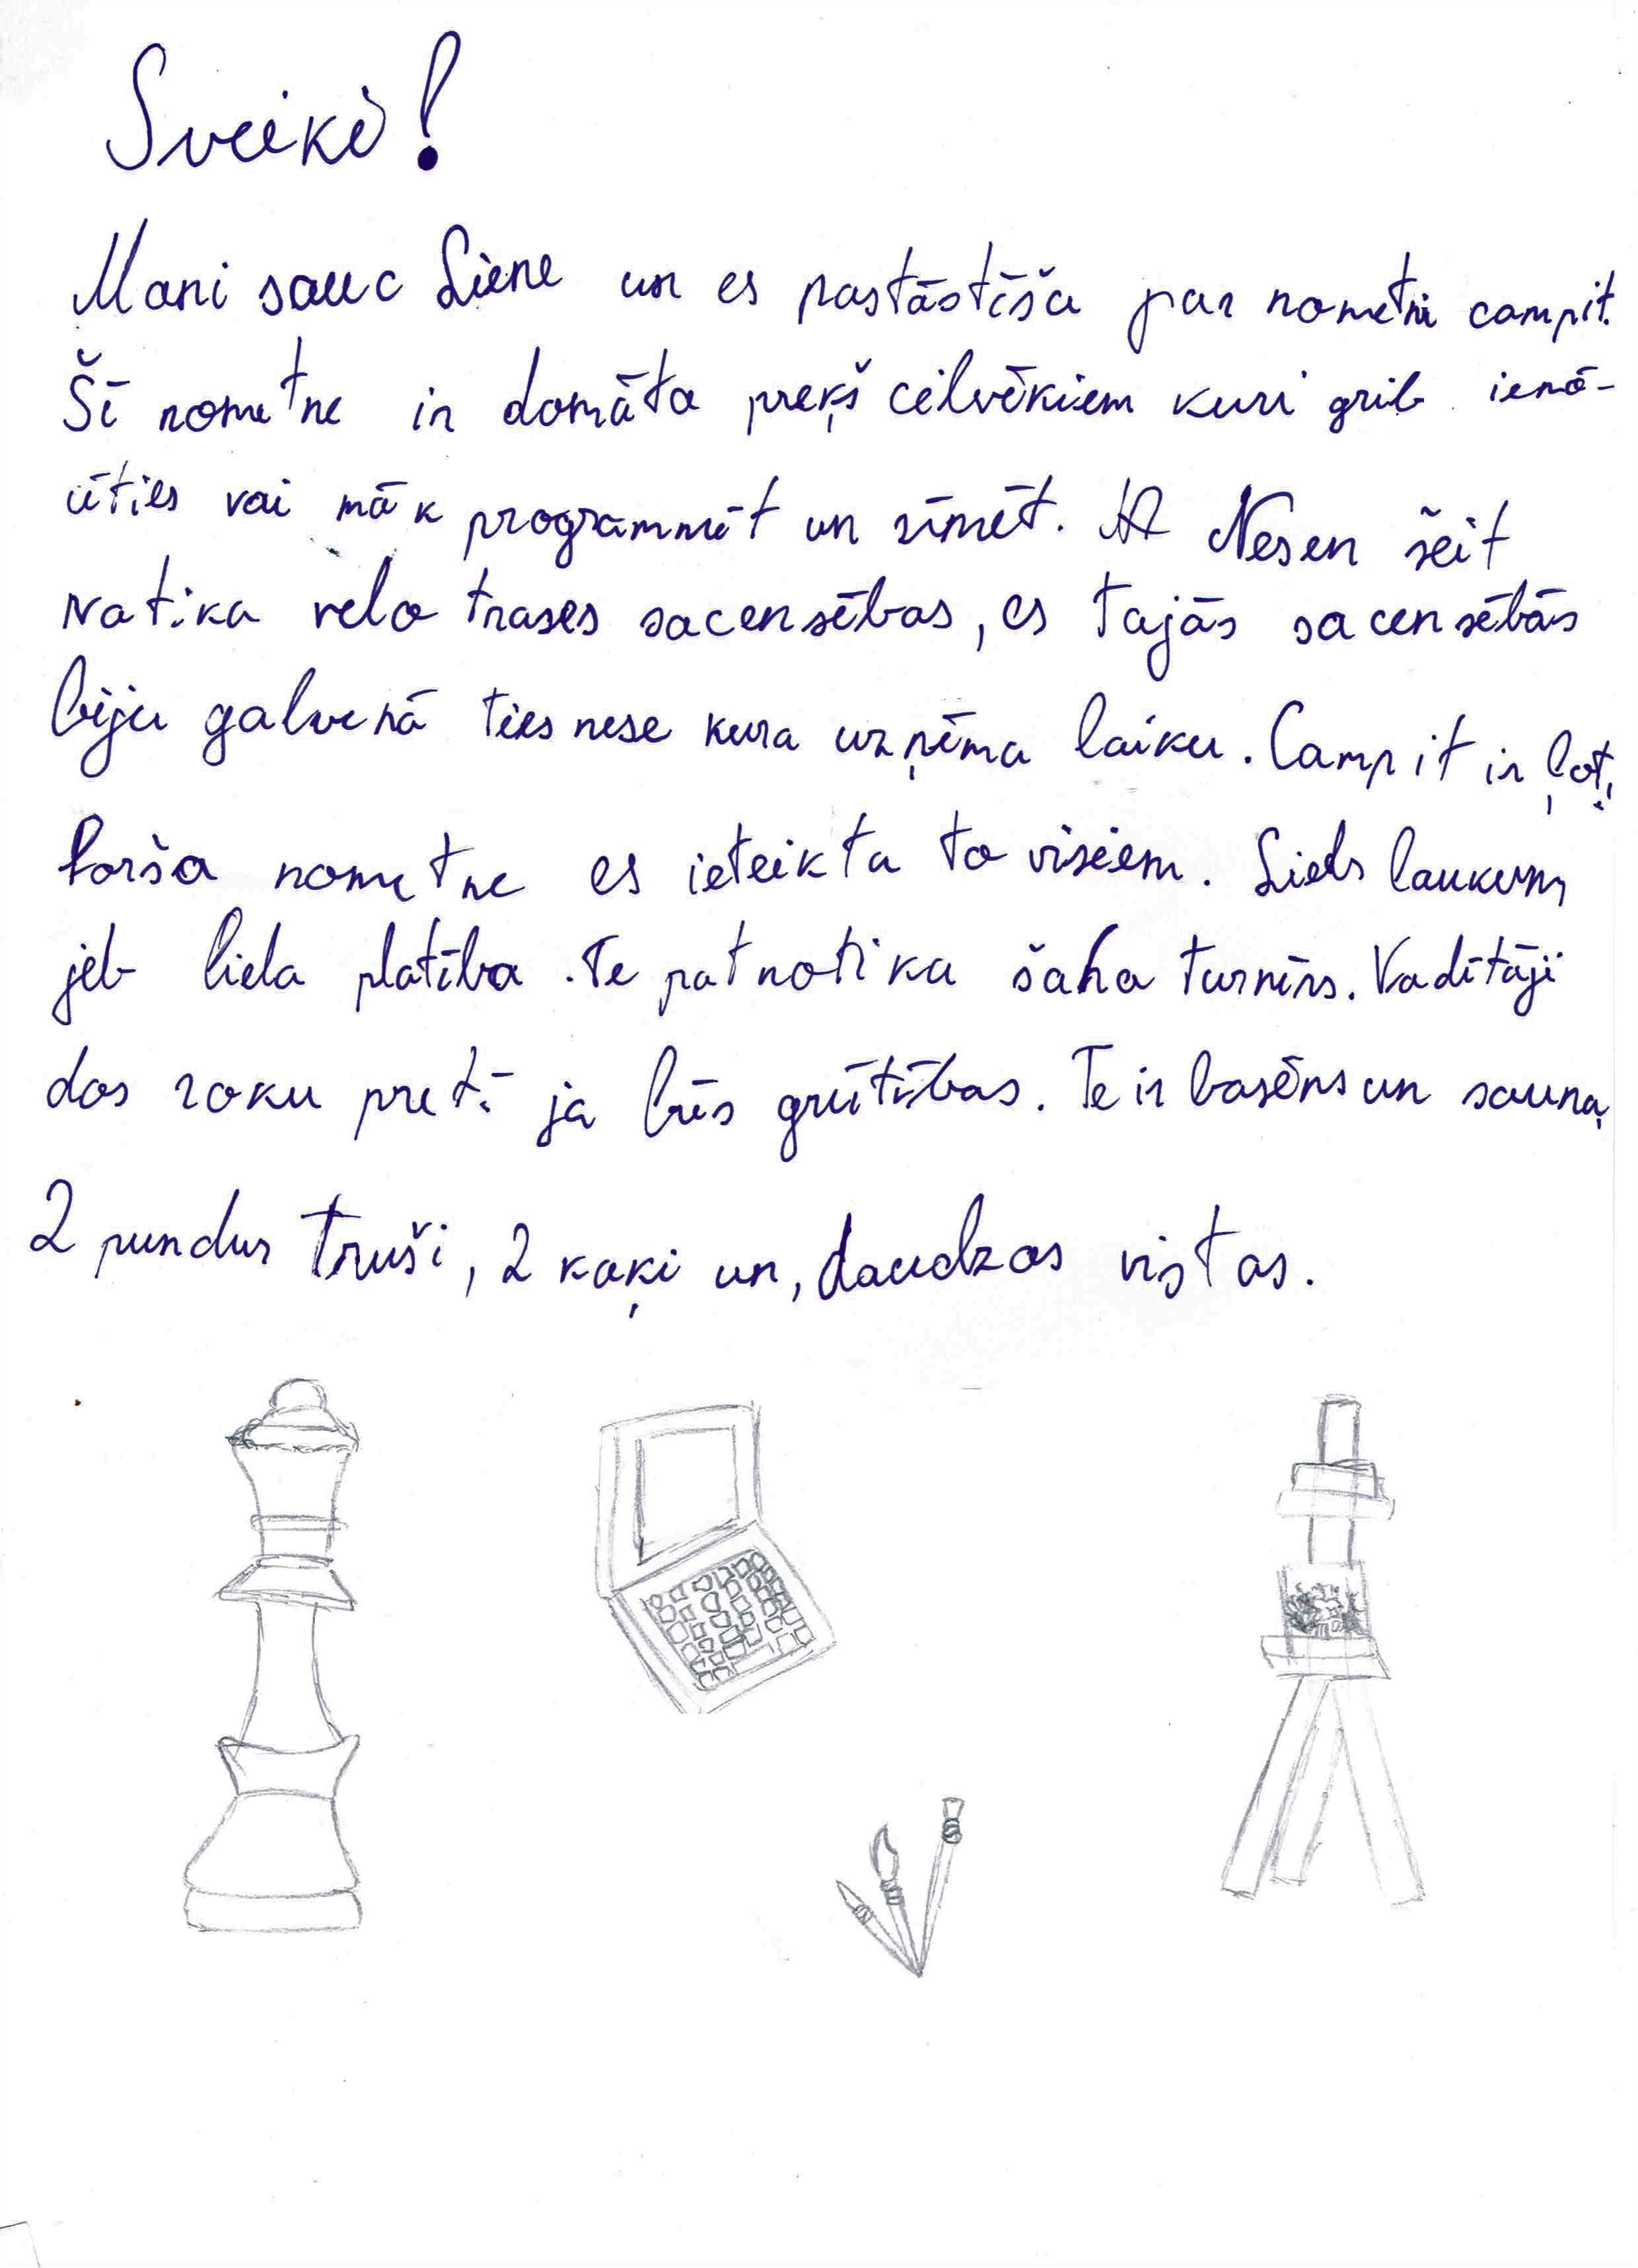 Sveiki!
Mani sauc Liene un es pastāstīšu par nometni campit.
Šī nometne ir domāta priekš cilvēkiem kuri grib iemā-
cīties vai māk programmēt un zīmēt. Nesen šeit
notika velo trases sacensības, es tajās sacensībās
biju galvenā tiesnese kura uzņēma laiku. Campit ir ļoti
forša nometne es ieteiktu to visiem. Liels laukums
jeb liela platība. Te pat notika šaha turnīrs. Vadītāji
dos roku pretī ja būs grūtības. Te ir basēns un sauna,
2 pundur truši, 2 kaķi un, daudzas vistas.